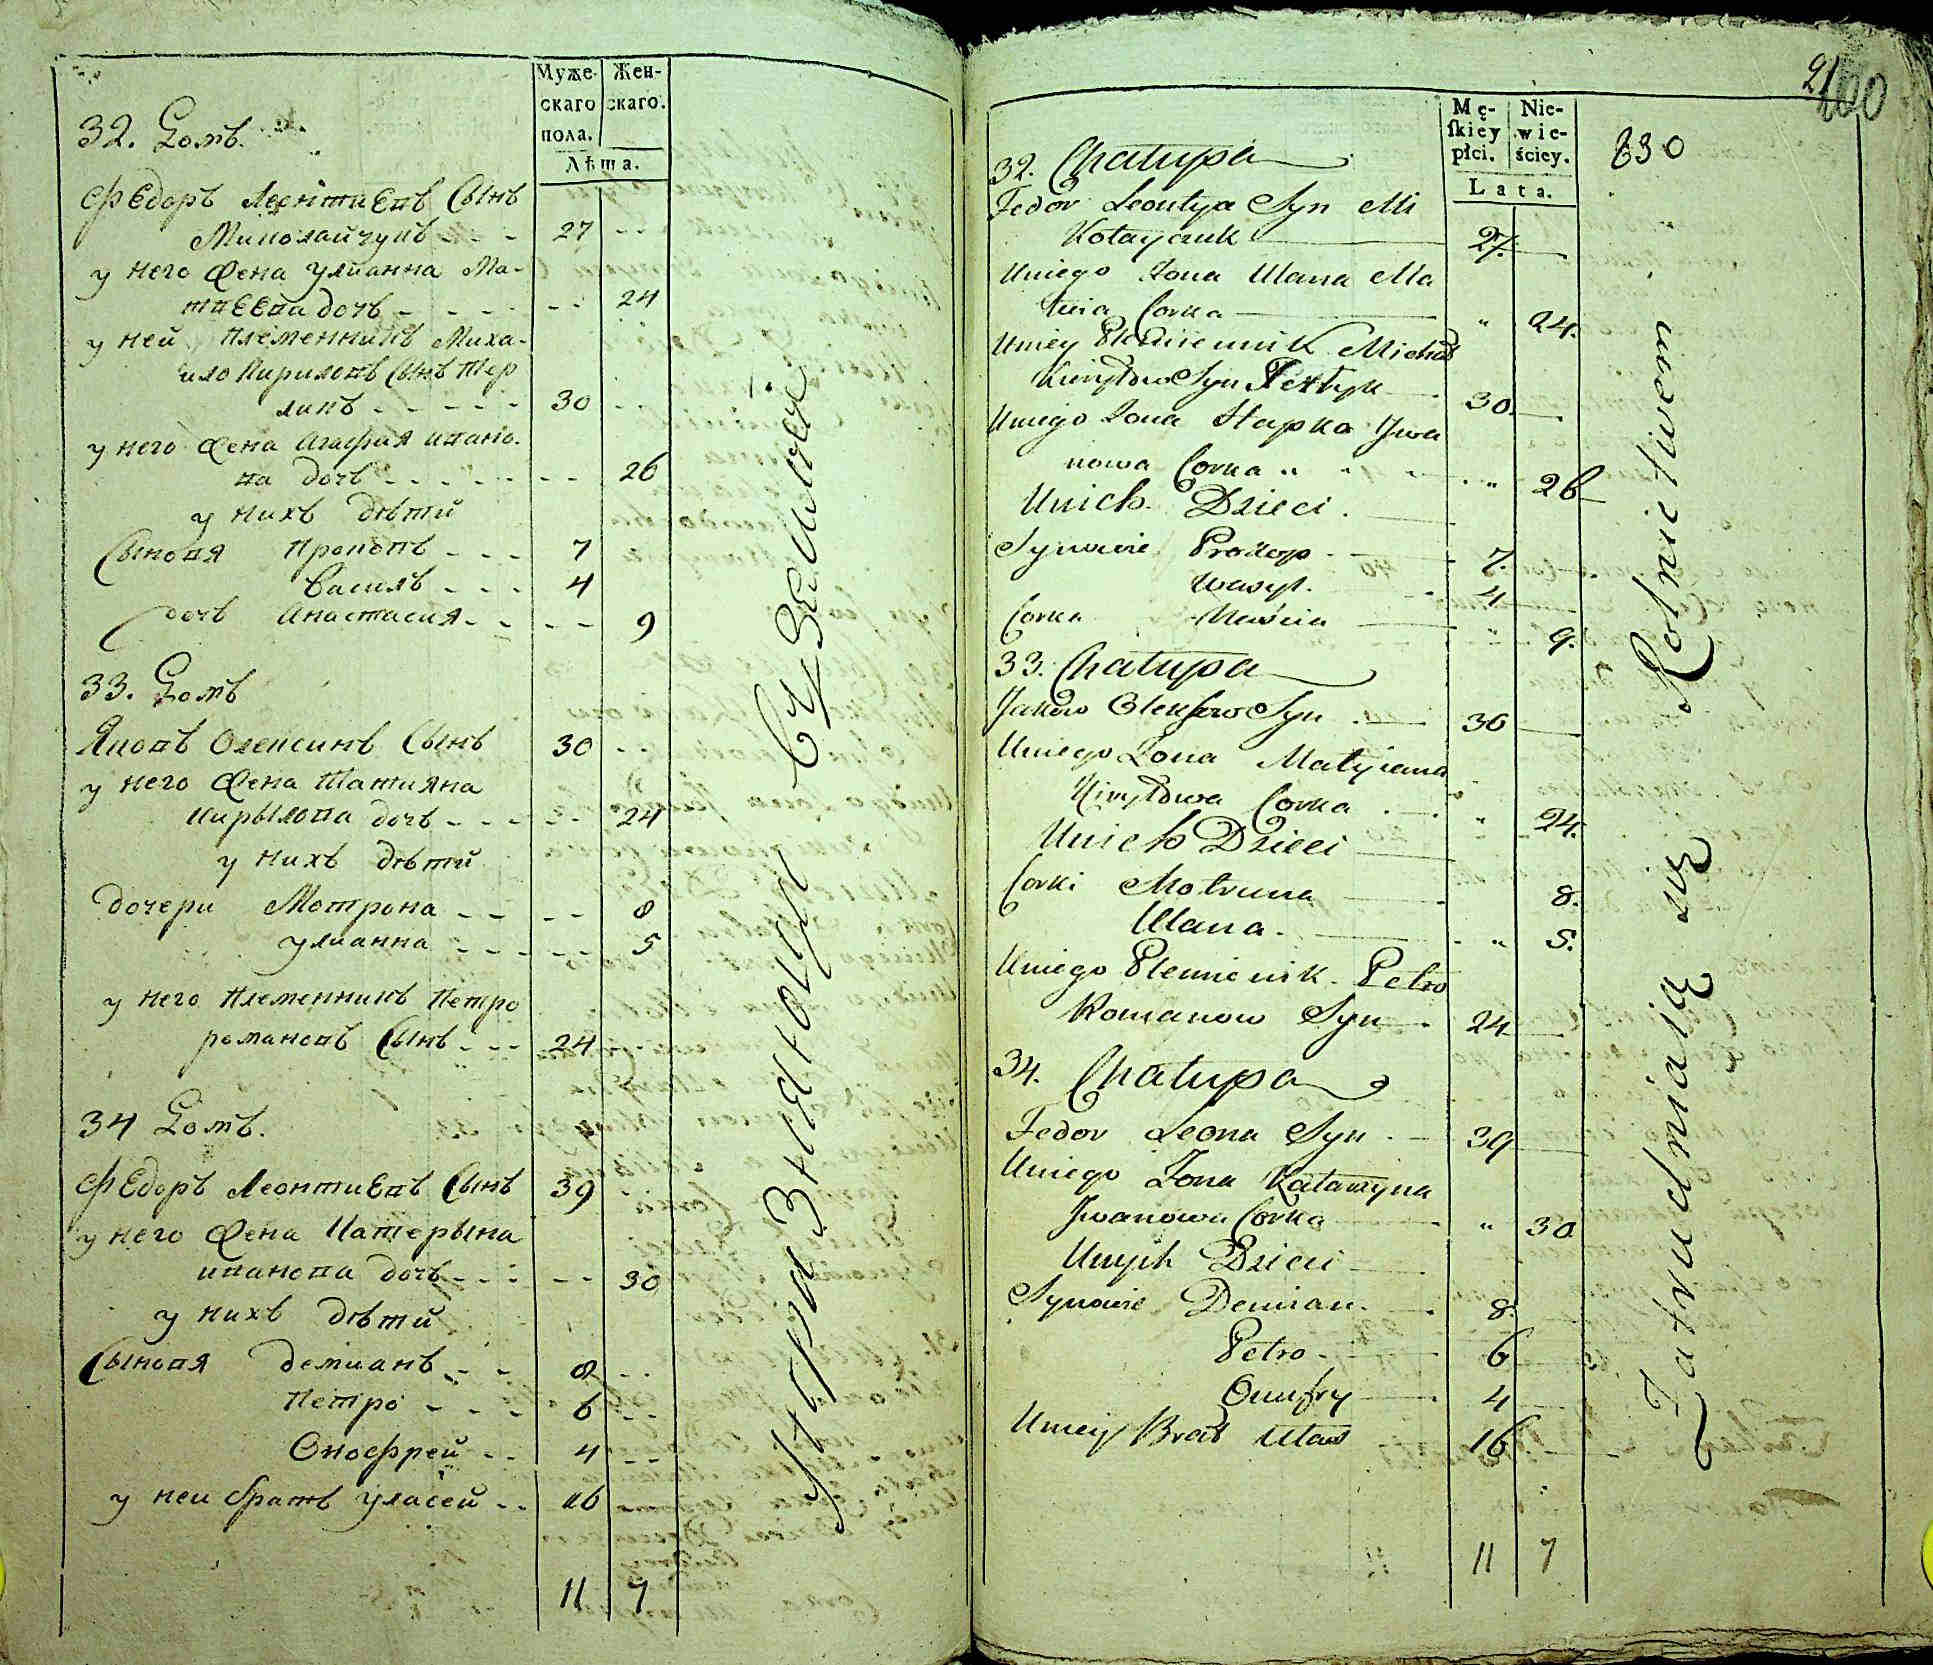 Муже-
скаго
пола.
Жен-
скаго.
Лѣта.
32. Домъ.
Федоръ Леонтиевъ Сынъ
Миколайчукъ - - - 27 - -
у него Жена Улианна Ма-
твеева дочь - - - - - - 24
у ней племенникъ Миха-
ило Кириловъ Сынъ Тер
ликъ - - - - - 30 - -
у него Жена Агафия ивано-
ва дочь - - - - - - - 26
у нихъ дѣти
Сыновя Прокопъ - - - 7
Василь - - - 4
дочь Анастасия - - - - 9
33. Домъ
Яковъ Олексинъ Сынъ 30 - -
у него Жена Татияна
Кирылова дочь - - - - - 24
у нихъ дѣти
дочери Мотрона - - - - 8
улианна - - - - - 5
у него племенникъ Петро
романовъ Сынъ - - - 24
34 Домъ.
Федоръ Леонтиевъ Сынъ 39 - -
у него Жена Катерына
иванова дочь - - - - - 30
у нихъ дѣти
Сыновя демианъ - - 8 - -
Петро - - - 6 - -
Онофрей - - 4 - -
у неи братъ уласей - - 16
11 7
Упражняюцца Въ Землѣ
Mę-
skiey
płci.
Nie-
wie-
ściey.
Lata.
21
100
830
32. Chałupa
Fedor Leontya Syn Mi
Kołayczuk 27.
Uniego Żona Ulana Ma
twia Corka " 24.
Uniey Plemiennik Michał
Kiryłow Syn Terlyk 30.
Uniego Żona Hapka Jwa
nowa Corka " " " 26
Unich Dzieci.
Synowie Prokop 7.
Wasyl. 4
Corka Naścia " 9.
33. Chałupa
Jakow Olexow Syn 30
Uniego Żona Matyiana
Kiryłowa Corka " 24.
Unich Dzieci
Corki Motruna 8.
Ulana " 5.
Uniego Plemienik Petro
Romanow Syn 24
34. Chałupa
Fedor Leona Syn 39
Uniego Żona Katarzyna
Jwanowa Corka " 30
Unych Dzieci
Synowie Demian. 8.
Petro 6
Onufry 4
Uniey Brat Ułas 16
11 7
Zatrudniaią się Rolnictwem